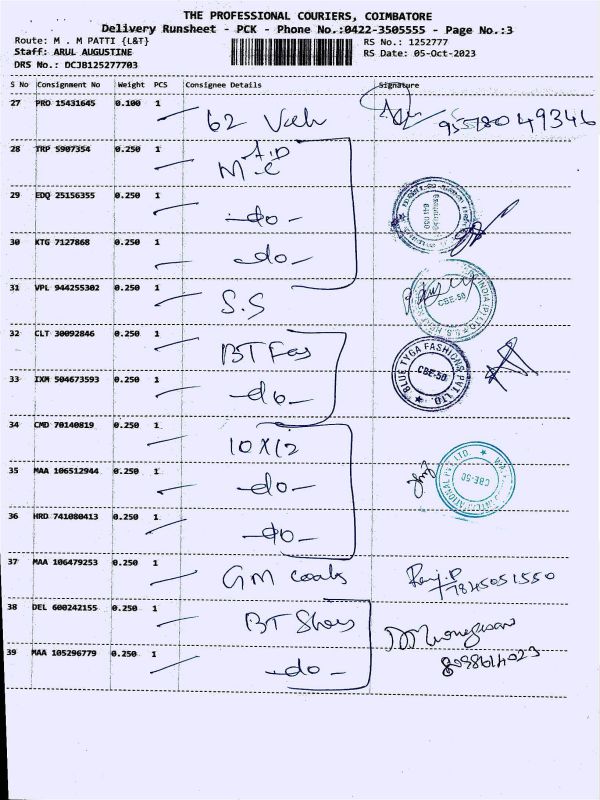 THE PROFESSIONAL COURIERS, COIMBATORE
Delivery Runsheet - PCK - Phone No.:0422-3505555 - Page No.:3
Route: M . M PATTI {L&T} RS No.: 1252777
Staff: ARUL AUGUSTINE RS Date: 05-Oct-2023
DRS No.: DCJB125277703
S No Consignment No Weight PCS Consignee Details Signature
27 PRO 15431645 0.100 1
62 9578049346
28 TRP 5907354 0.250 1
29 EDQ 25156355 0.250 1
-do-
30 KTG 7127868 0.250 1
-do-
31 VPL 944255302 0.250 1
S.S CBE-50
32 CLT 30092846 0.250 1
BT Fas BLUE TYGA FASHIONS PVT. LTD. CBE-50
33 IXM 504673593 0.250 1
-do-
34 CMD 70140819 0.250 1
10X12
35 MAA 106512944 0.250 1
-do- CBE-50
36 HRD 741080413 0.250 1
-do-
37 MAA 106479253 0.250 1
GM coats 7845051550
38 DEL 600242155 0.250 1
BT Shoes
39 MAA 105296779 0.250 1
-do- 8098614023